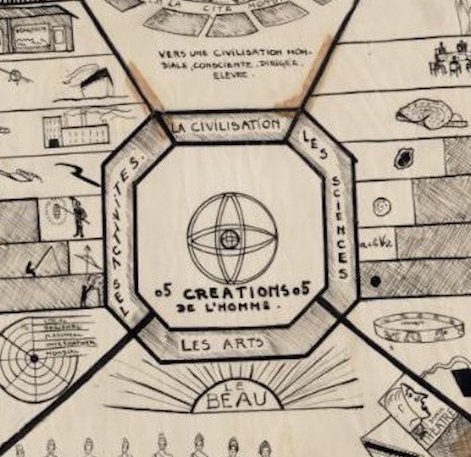 LA CITÉ MON
VERS UNE CIVILISATION MON-
DIALE, CONSCIENTE, DIRIGÉE,
ELEVÉE.
LA CIVILISATION
LES SCIENCES
LES ACTIVITES.
05 CREATIONS 05
DE L'HOMME.
LES ARTS
LE
BEAU
LOCAL
REGIONAL
NATIONAL
INTERNATIONAL
MONDIAL
THEATRE